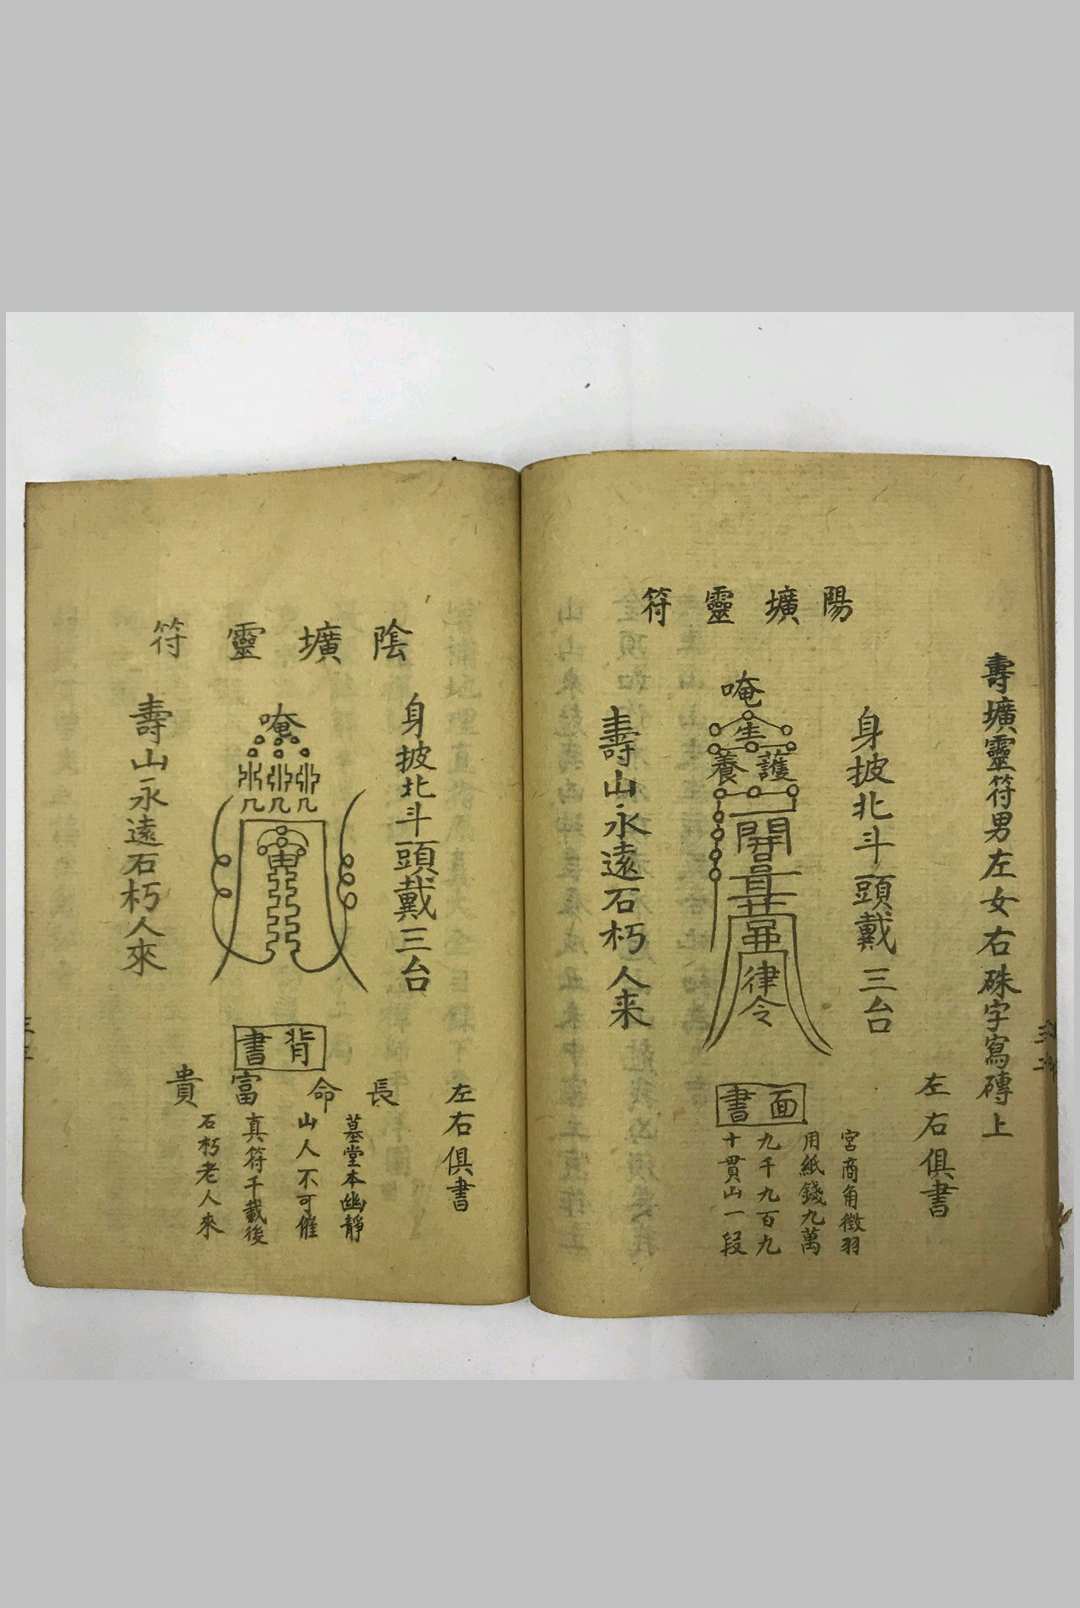 壽壙靈符男左女右硃字寫磚上
陽壙靈符
身披北斗頭戴三台
唵
生
養護
開
律令
壽山永遠石朽人来
左右俱書
面書
宮商角徵羽
用紙錢九萬
九千九百九
十貫山一段
陰壙靈符
身披北斗頭戴三台
唵
壽山永遠石朽人來
左右俱書
背書
長命富貴
墓堂本幽靜
山人不可催
真符千載後
石朽老人來